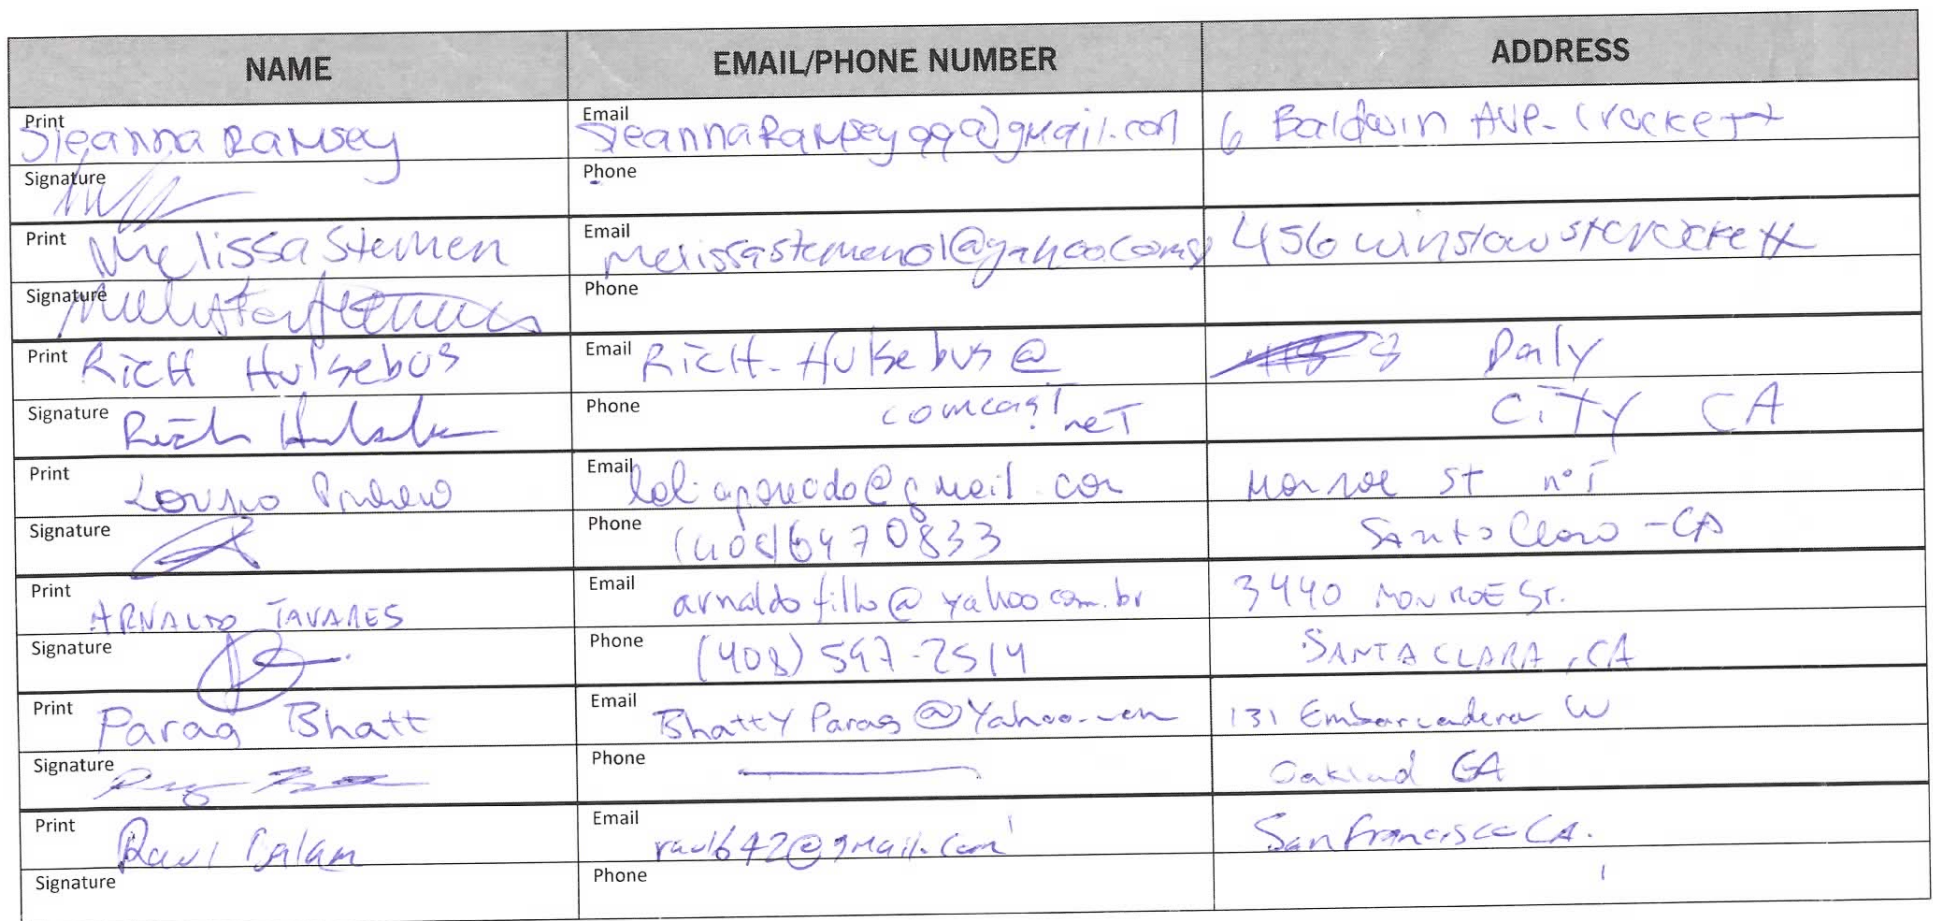 NAME EMAIL/PHONE NUMBER ADDRESS
Print Email
Sieanna Ramsey SieannaRamsey99@gmail.com 6 Baldwin AVE- Crockett
Signature Phone
Print Melissa Stemen Email melissastemen01@yahoo.com 456 winslow st crockett
Signature Phone
Print RICH Hulsebus Email RICH-Hulsebus@ Daly
Signature Rich Phone comcast net CITY CA
Print Email Monroe St
Signature Phone (408)6470833 Santa Clara - CA
Print ARNALDO TAVARES Email arnaldofilho@yahoo.com.br 3440 MONROE ST.
Signature Phone (408) 597-2514 SANTA CLARA, CA
Print Parag Bhatt Email Bhatty Parag @Yahoo.com 131 Embarcadero W
Signature Phone Oakland CA
Print Raul Email raul642@gmail.com San Francisco CA.
Signature Phone